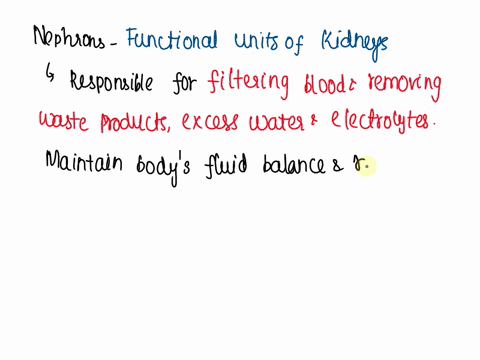 Nephrons - Functional units of Kidneys
↳ Responsible for filtering blood & removing
waste products, excess water & electrolytes.
Maintain body's fluid balance & r